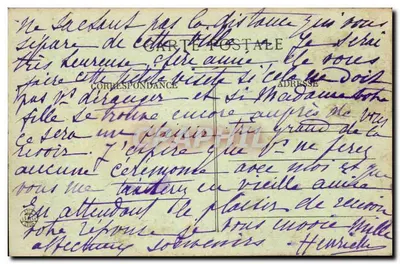 ne sachant pas la distance qui vous
sépare de cette
CARTE POSTALE
Je serai
très heureuse chère amie de vous
faire cette petite visite si cela ne doit
CORRESPONDANCE
ADRESSE
pas vs déranger et si Madame votre
fille se trouve encore auprès de vous
ce sera un plaisir très grand de la
revoir. J'espère que Vs ne ferez
aucune cérémonie avec moi et que
vous me traiterez en vieille amie
En attendant le plaisir de recevoir
votre réponse je vous envoie mille
affectueux souvenirs Henriette